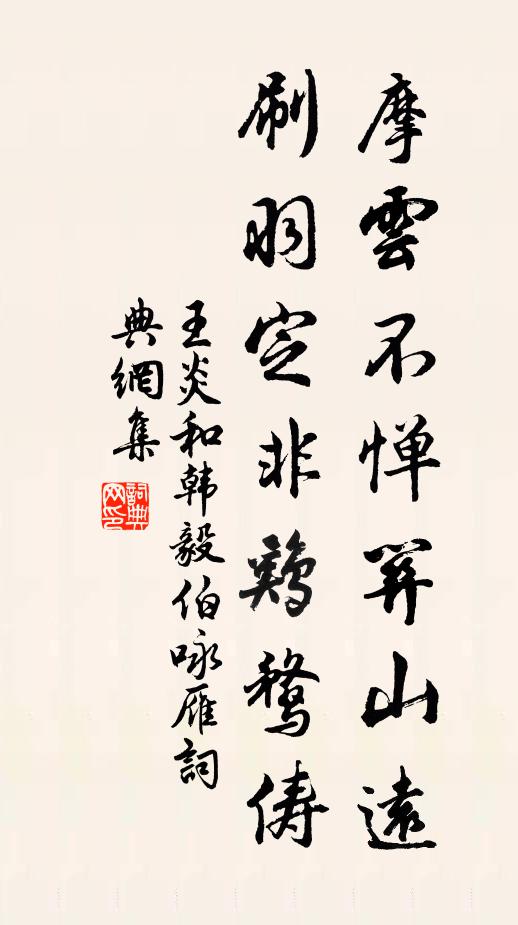 摩雲不憚關山遠
刷羽定非鷄鶩儔
王炎和韩毅伯咏雁詞
典網集
詞典
网印